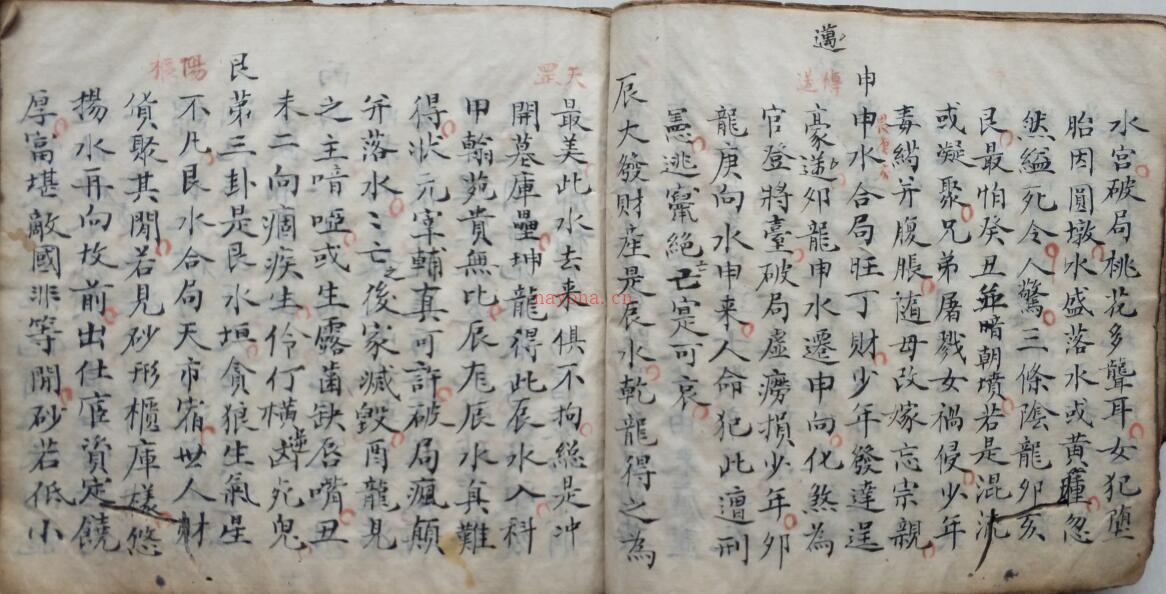 水宮破局桃花多聾耳女犯墮
胎因圓墩水盛落水或黃腫忽
然縊死令人驚三條陰龍卯亥
艮最怕癸丑並暗朝墳若是混流
或凝聚兄弟屠戮女禍侵少年
毒葯并腹脹隨母改嫁忘宗親
申
申水合局旺丁財少年發達逞
傳送
邁
豪遂卯龍申水遷申向化煞為
官登將臺破局虛癆損少年卯
龍庚向水申来人命犯此遭刑
憲逃竄絕亡寔可哀
辰大發財産是辰水乾龍得之為
最美此水去来俱不拘総是冲
天罡
開墓庫壘坤龍得此辰水入科
甲翰苑貴無比辰龙辰水真難
得状元宰輔真可許破局瘋顛
并落水亡之後家減毀酉龍見
之主喑啞或生露齒缺唇嘴丑
未二向痼疾生伶仃橫逆死鬼
艮第三卦是艮水垣貪狼生氣星
陽樞
不凡艮水合局天市宿世人財
貨聚其閒若見砂形櫃庫樣悠
揚水再向坟前出仕宦資定饒
厚富堪敵國非等閒砂若低小
nayona.cn